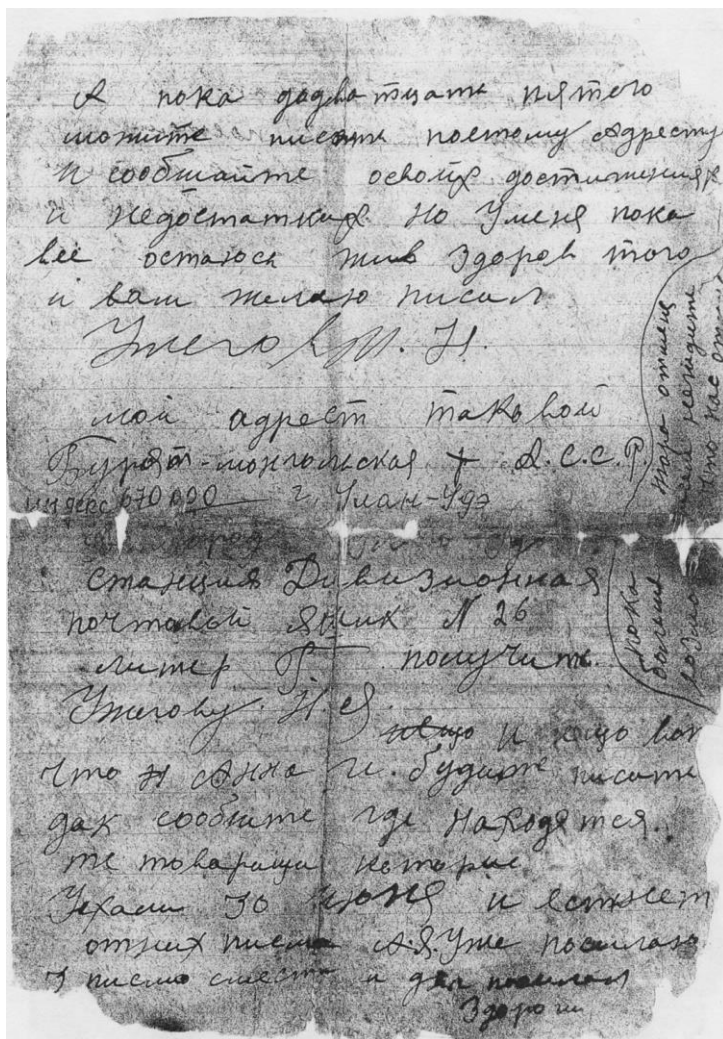 А пока додватцати пятого
можите писать поетому Адресту
и сообшайте освоих достиженнях
и недостатках но Уменя пока
все остаюсь жив здоров того
и вам желаю писал
Ужегов Н.
мой адрест таковой
Бурят-монгольская А.С.С.Р.
индекс 670000 г. Улан-Удэ
станция Дивизионная
почтовый яшик N 26
литер Г получить
Ужегову. Н.Я.
и ищо вот
что Анна Г. будите писать
дак сообщите где находятся
те товарищи которые
Уехали 30 июня и естьнет
отних письма А.Я. Уже посылаю
3 письмо сместа и посылал
Здороги
пока
больше